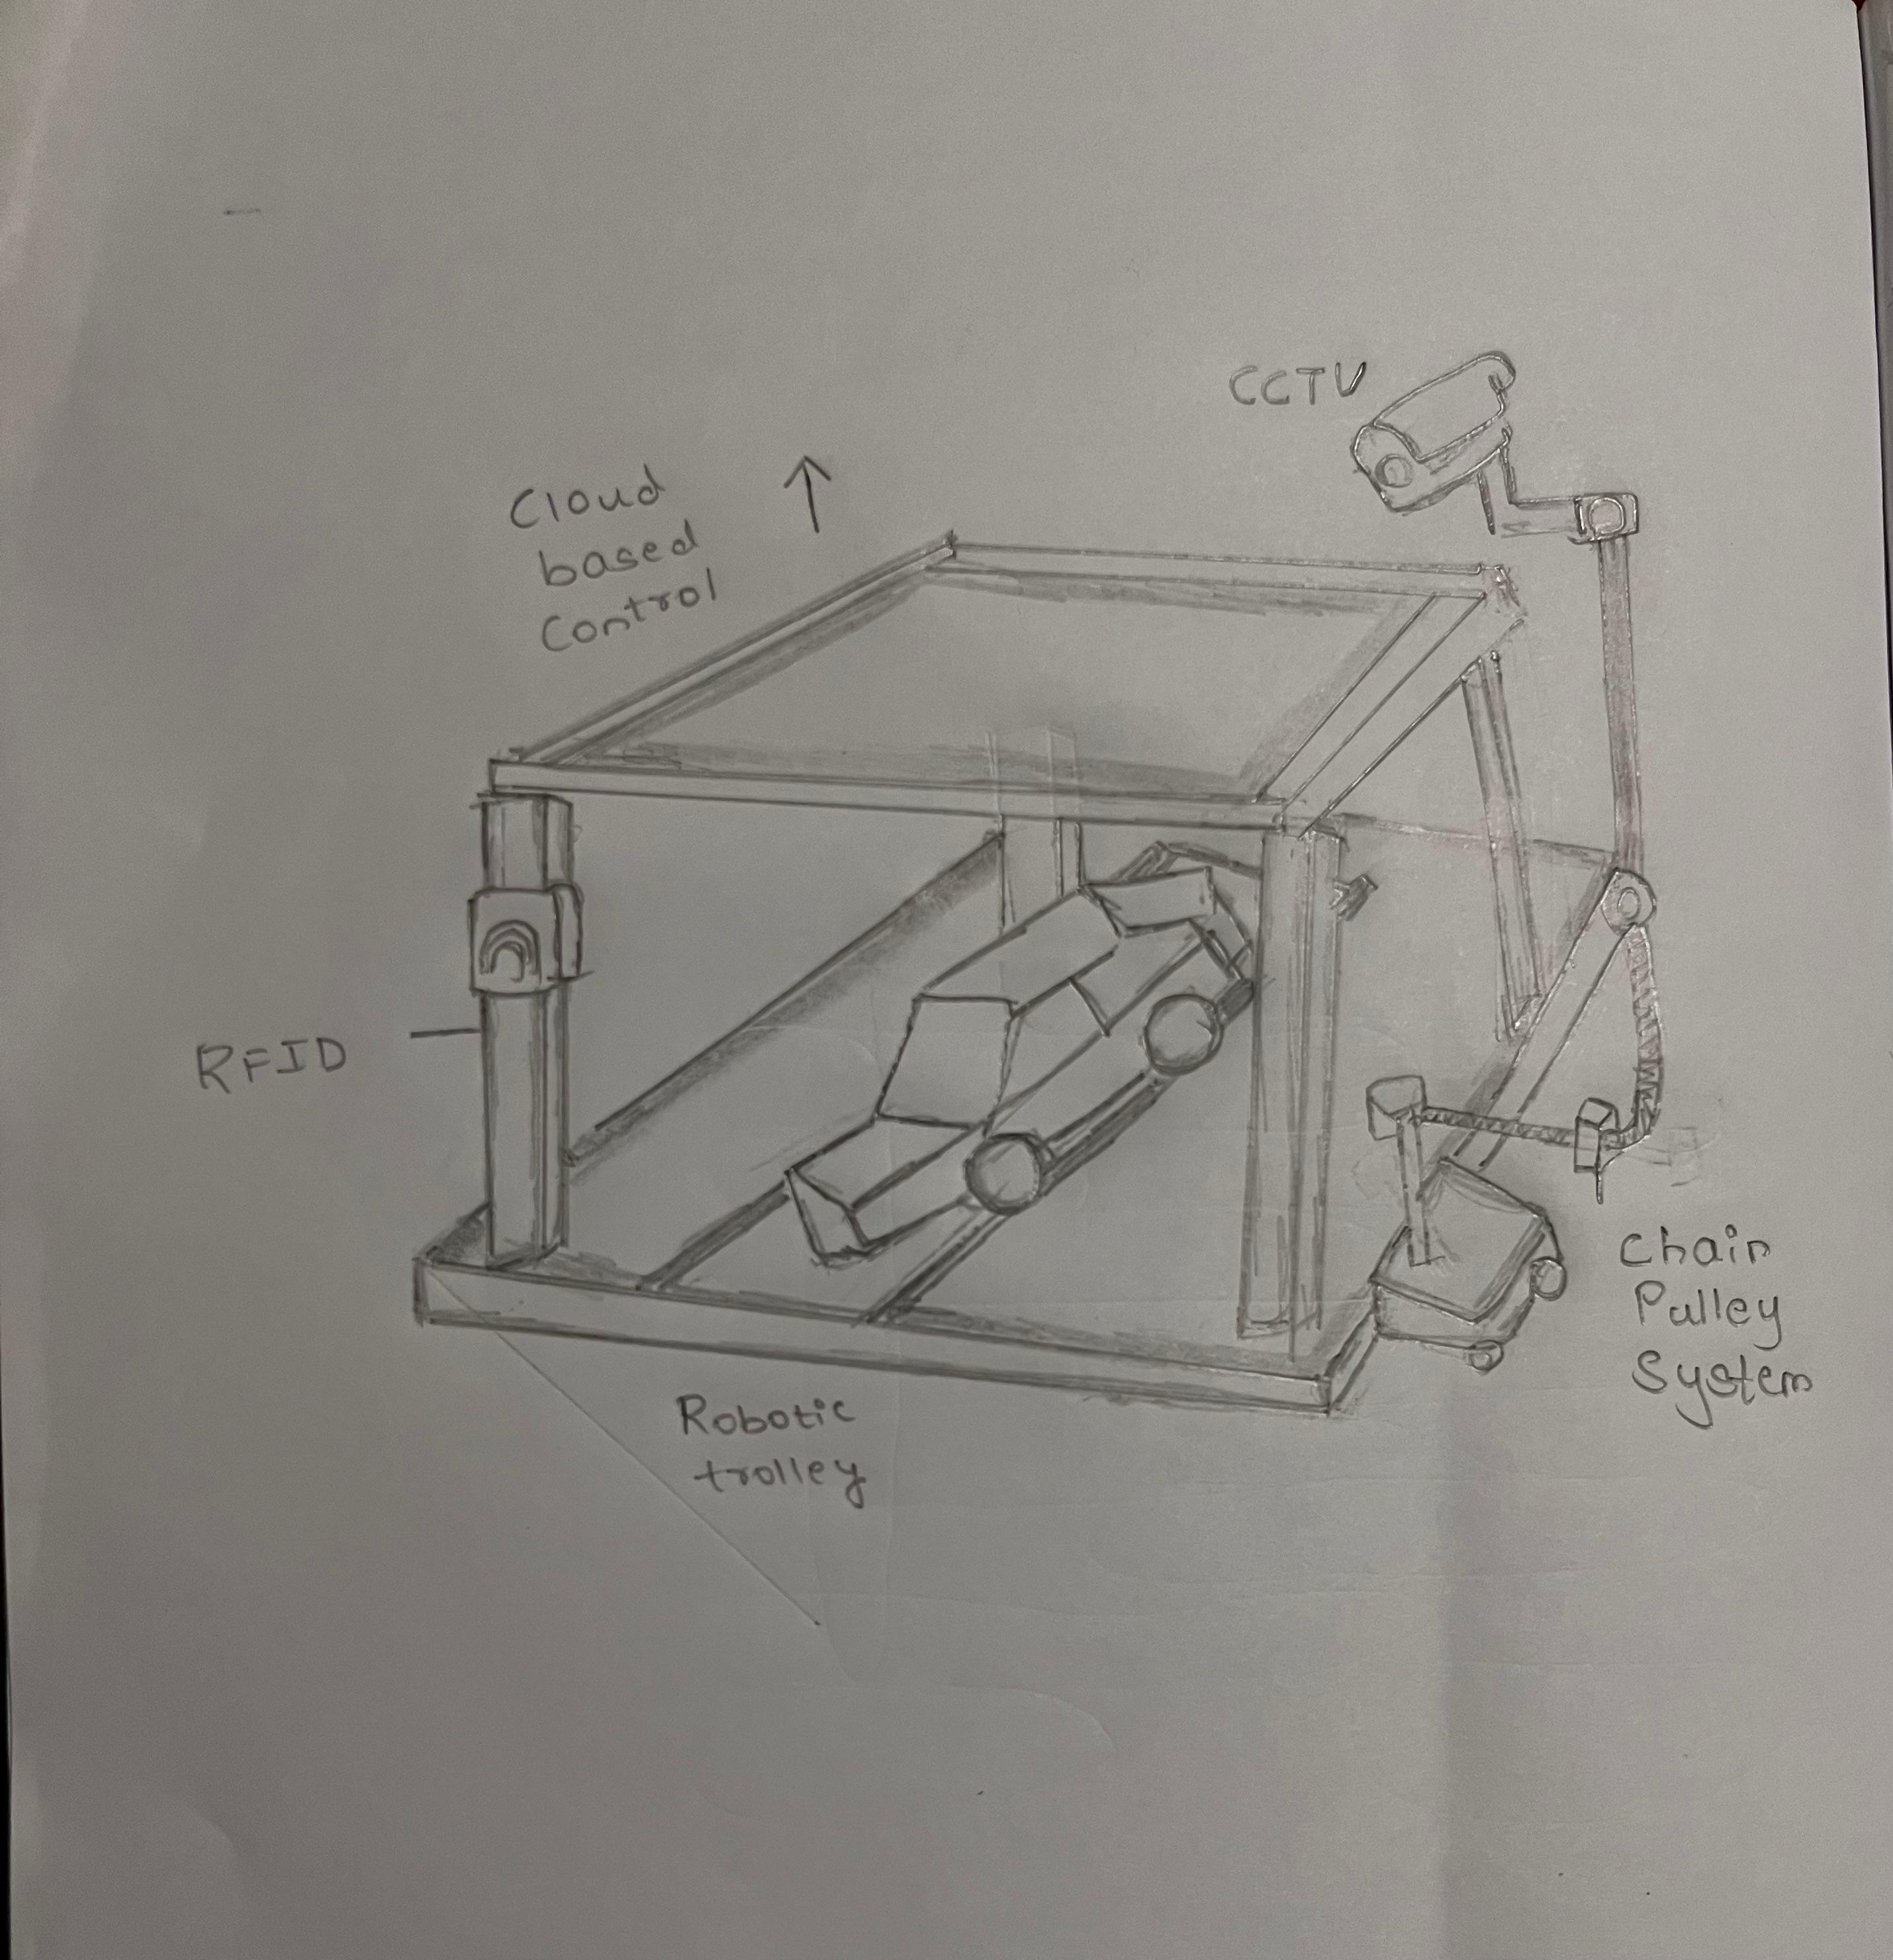 CCTV
Cloud
based
Control
RFID
Chain
Pulley
System
Robotic
trolley